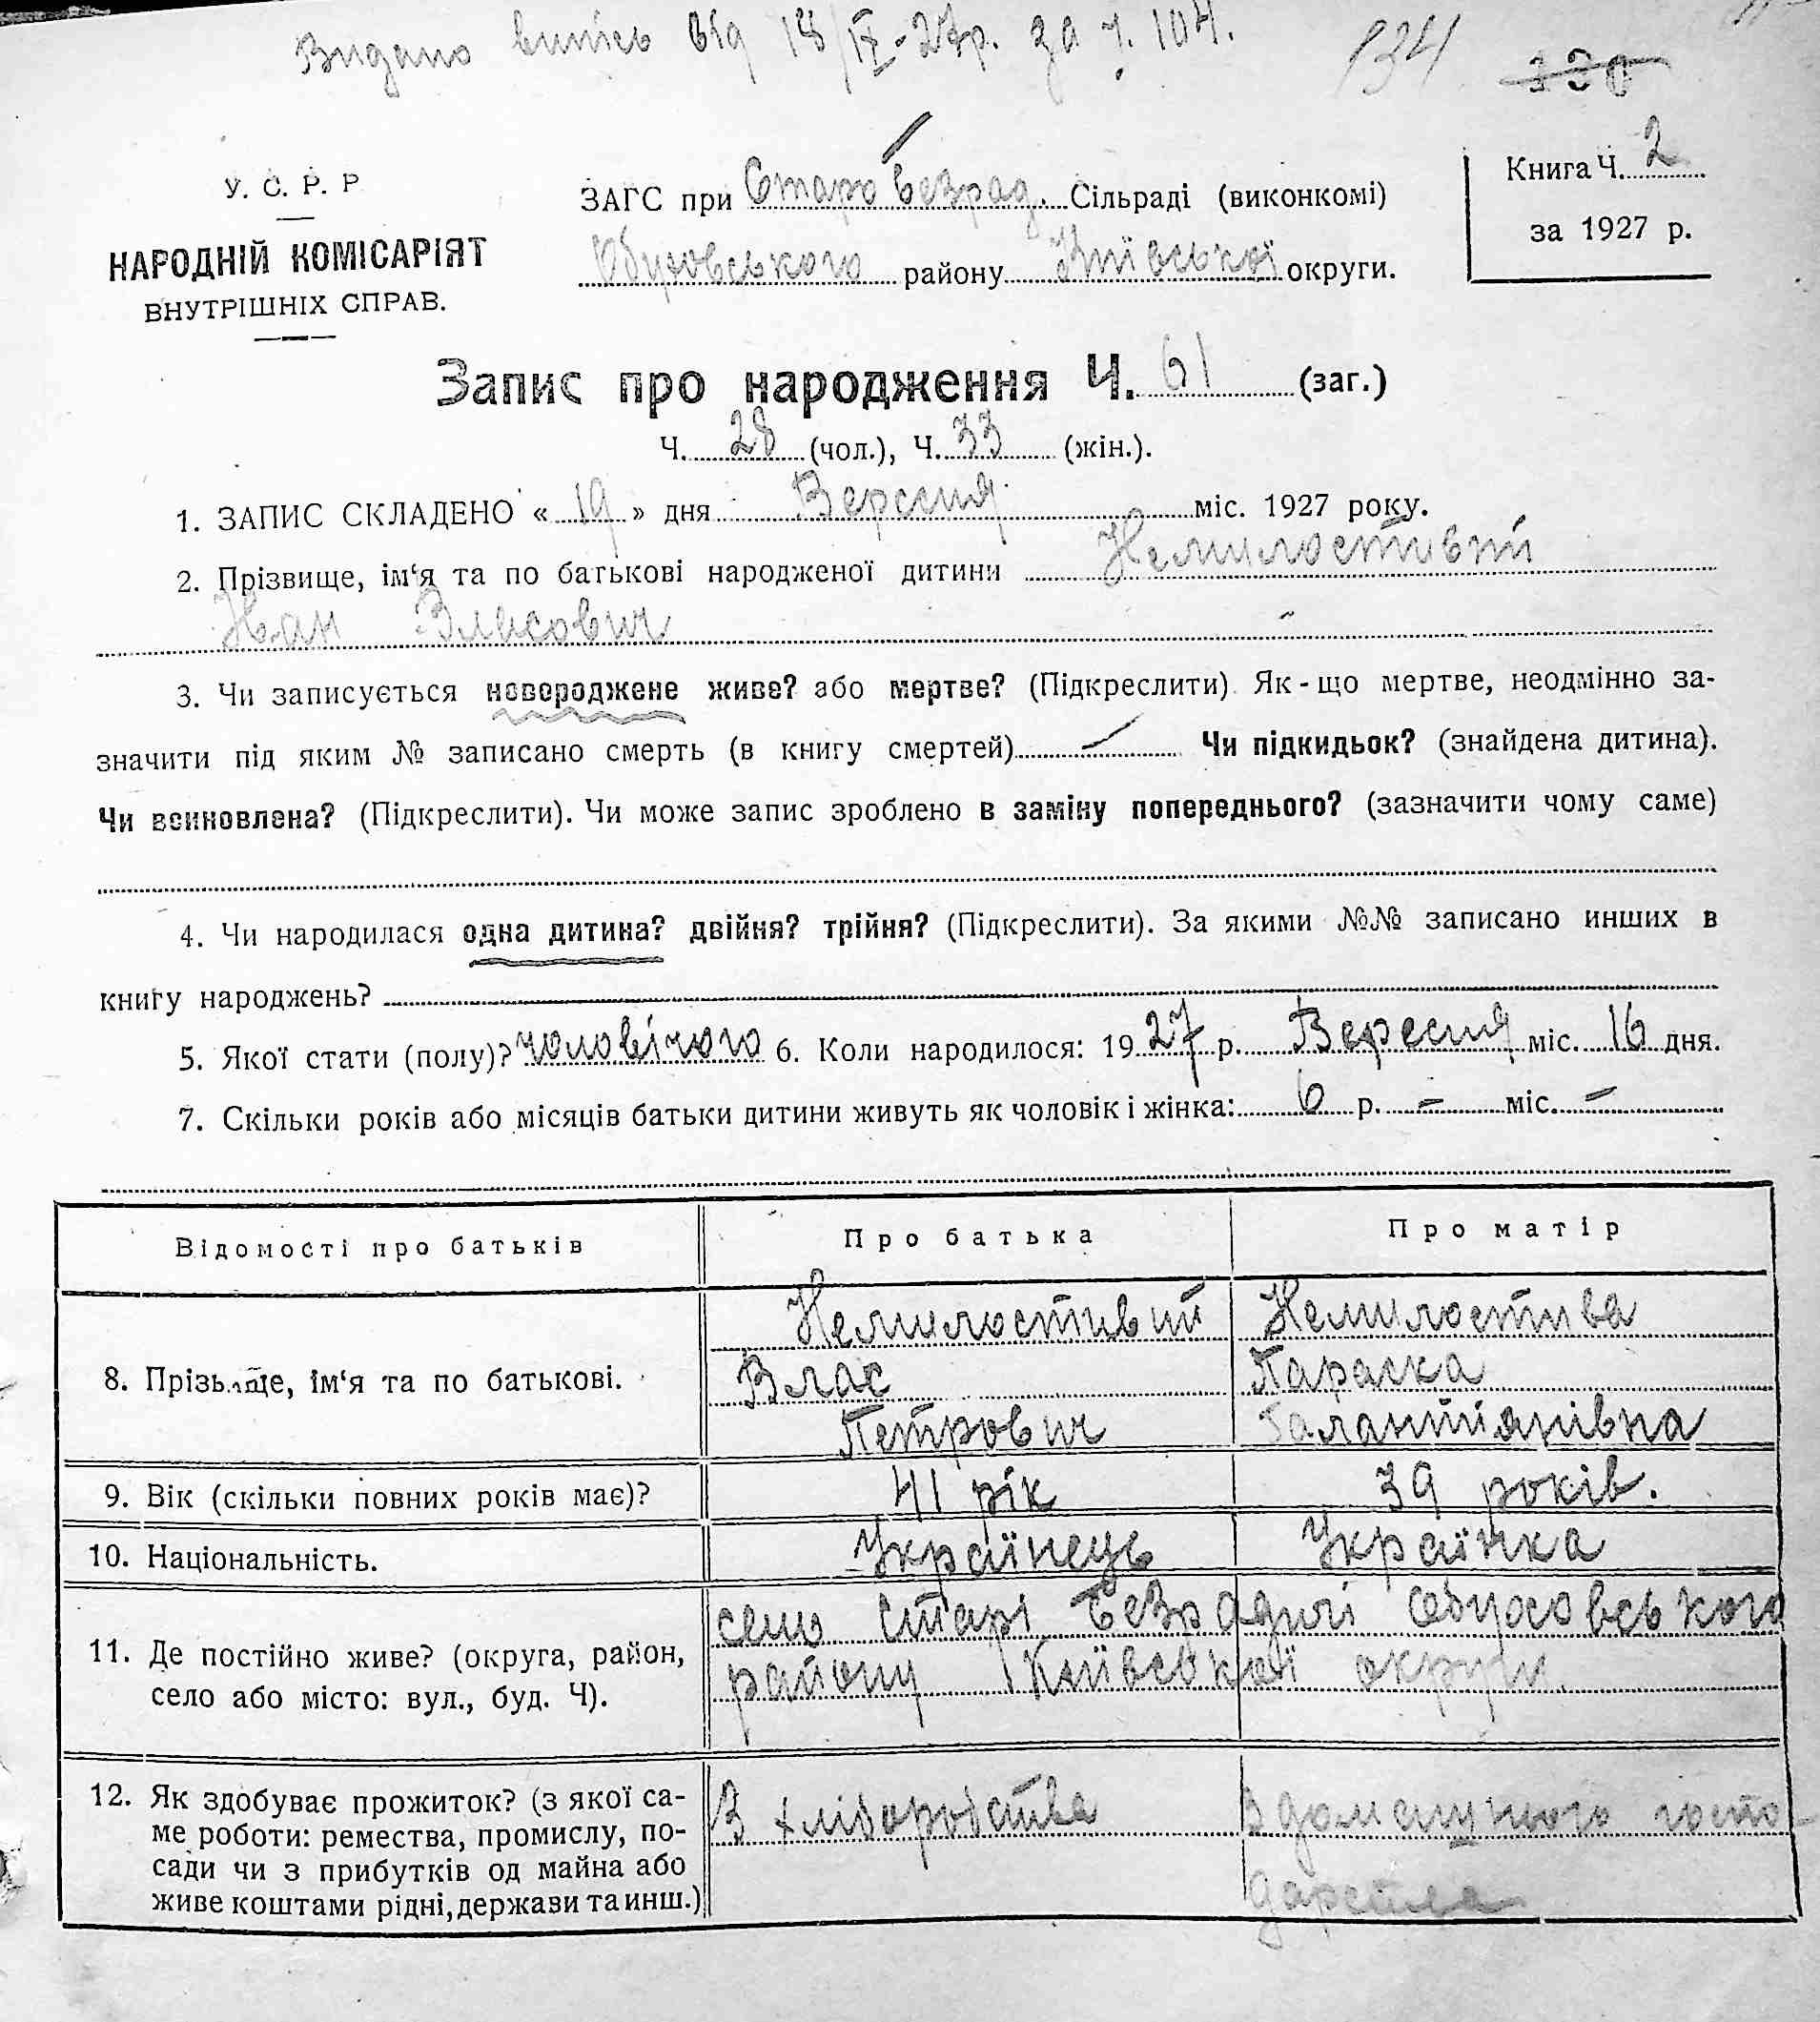 Видано випись від 18/IX-27р. за ч. 104.
134 130
У. С. Р. Р
НАРОДНІЙ КОМІСАРІЯТ
ВНУТРІШНІХ СПРАВ.
ЗАГС при Старо Безрад. Сільраді (виконкомі)
Обуховського району Київської округи.
Книга Ч. 2
за 1927 р.
Запис про народження Ч. 61 (заг.)
Ч. 28 (чол.), Ч. 33 (жін.).
1. ЗАПИС СКЛАДЕНО « 19 » дня Вересня міс. 1927 року.
2. Прізвище, ім‘я та по батькові народженої дитини Немилостивий
Іван Власович
3. Чи записується новороджене живе? або мертве? (Підкреслити) Як-що мертве, неодмінно за-
значити під яким № записано смерть (в книгу смертей) — Чи підкидьок? (знайдена дитина).
Чи всиновлена? (Підкреслити). Чи може запис зроблено в заміну попереднього? (зазначити чому саме)
4. Чи народилася одна дитина? двійня? трійня? (Підкреслити). За якими №№ записано инших в
книгу народжень?
5. Якої стати (полу)? чоловічого 6. Коли народилося: 1927 р. Вересня міс. 16 дня.
7. Скільки років або місяців батьки дитини живуть як чоловік і жінка: 6 р. — міс. —
Відомості про батьків Про батька Про матір
8. Прізвище, ім‘я та по батькові.
Немилостивий
Влас
Петрович
Немилостива
Параска
Галантіянівна
9. Вік (скільки повних років має)? 41 рік 39 років.
10. Національність. Українець Українка
11. Де постійно живе? (округа, район,
село або місто: вул., буд. Ч).
село Старі Безрадичі Обуховського
району Київської округи.
12. Як здобуває прожиток? (з якої са-
ме роботи: ремества, промислу, по-
сади чи з прибутків од майна або
живе коштами рідні, держави та инш.)
З хліборобства
З домашнього госпо-
дарства